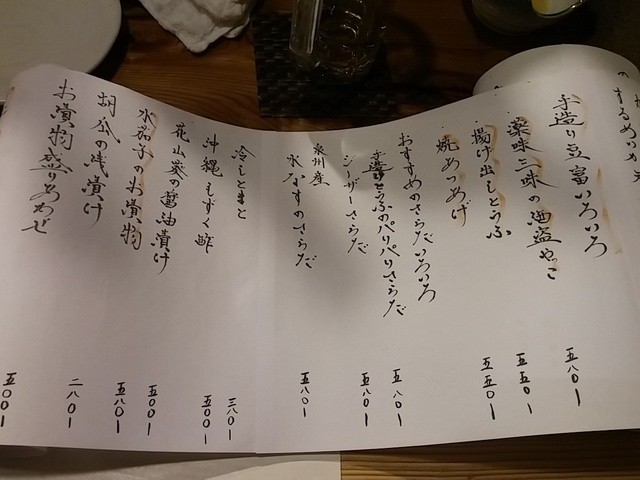 手造り豆富いろいろ
薬味三味の酒盗やっこ 五八〇ー
揚げ出しとうふ 五五〇ー
焼あつあげ 五五〇ー
おすすめのさらだいろいろ
手造りとうふのパリパリさらだ 五八〇ー
シーザーさらだ 五八〇ー
泉州産
水なすのさらだ 五八〇ー
冷しとまと 三八〇ー
沖縄もずく酢 五〇〇ー
花山葵の醤油漬け 五〇〇ー
水茄子のお漬物 五八〇ー
胡瓜の浅漬け 二八〇ー
お漬物盛りあわせ 五〇〇ー